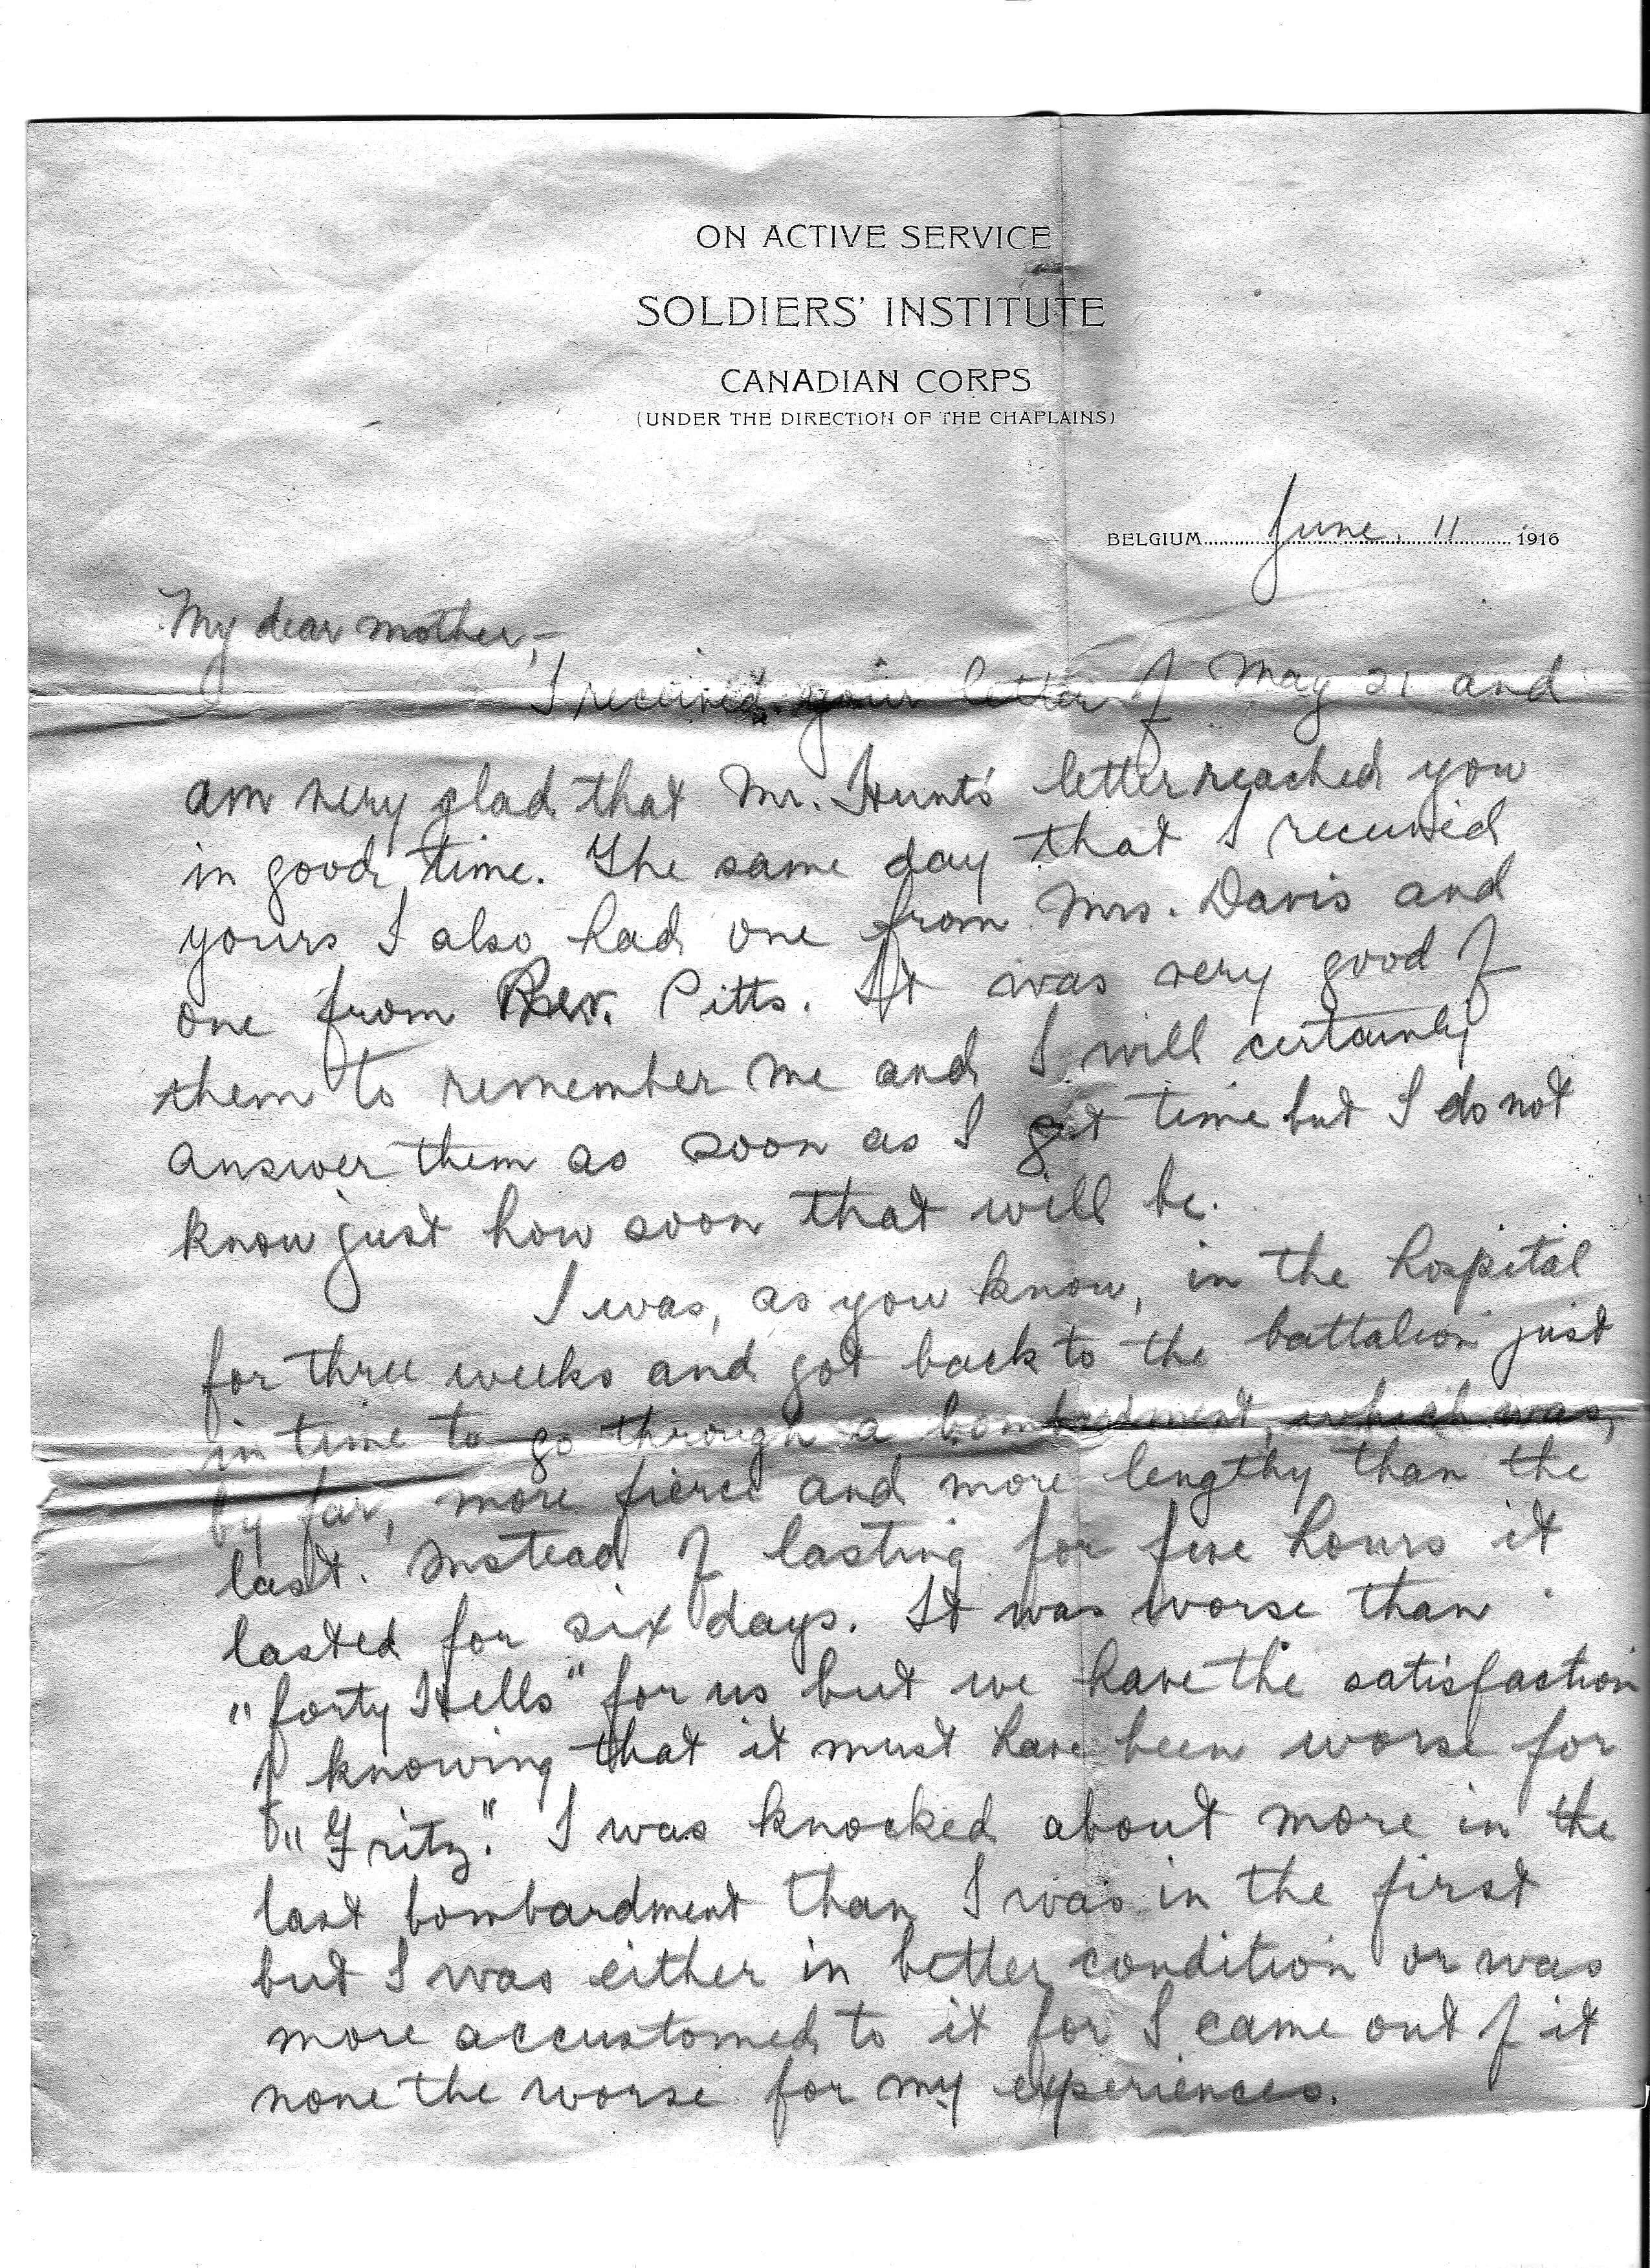 ON ACTIVE SERVICE
SOLDIERS' INSTITUTE
CANADIAN CORPS
(UNDER THE DIRECTION OF THE CHAPLAINS)
BELGIUM........June. 11........1916
My dear mother,-
I received your letter of May 21 and
am very glad that Mr. Hunt's letter reached you
in good time. The same day that I received
yours I also had one from Mrs. Davis and
one from Rev. Pitts. It was very good of
them to remember me and I will certainly
answer them as soon as I get time but I do not
know just how soon that will be.
I was, as you know, in the hospital
for three weeks and got back to the battalion just
in time to go through a bombardment, which was,
by far, more fierce and more lengthy than the
last. Instead of lasting for five hours it
lasted for six days. It was worse than
"forty Hells" for us but we have the satisfaction
of knowing that it must have been worse for
"Fritz." I was knocked about more in the
last bombardment than I was in the first
but I was either in better condition or was
more accustomed to it for I came out of it
none the worse for my experiences.